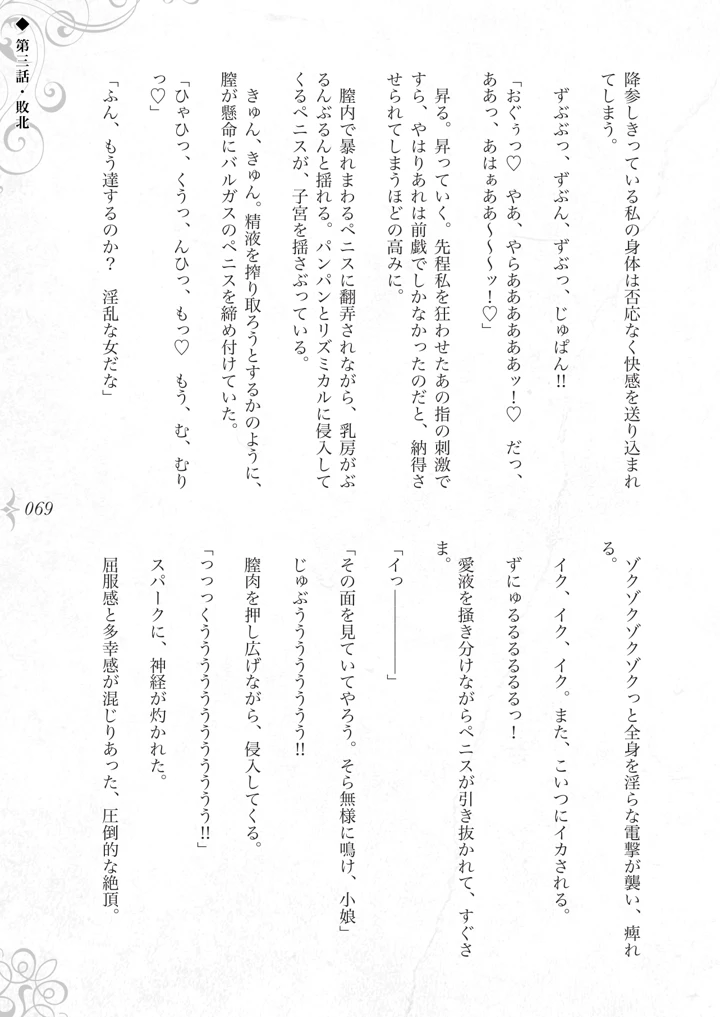 ◆第三話・敗北
降参しきっている私の身体は否応なく快感を送り込まれ
てしまう。
ずぶぶっ、ずぶん、ずぶっ、じゅぱん!!
「おぐぅっ♡　やあ、やらああああああッ！♡　だっ、
ああっ、あはぁああ〜〜〜ッ！♡」
昇る。昇っていく。先程私を狂わせたあの指の刺激で
すら、やはりあれは前戯でしかなかったのだと、納得さ
せられてしまうほどの高みに。
膣内で暴れまわるペニスに翻弄されながら、乳房がぶ
るんぶるんと揺れる。パンパンとリズミカルに侵入して
くるペニスが、子宮を揺さぶっている。
きゅん、きゅん。精液を搾り取ろうとするかのように、
膣が懸命にバルガスのペニスを締め付けていた。
「ひゃひっ、くうっ、んひっ、もっ♡　もう、む、むり
っ♡」
「ふん、もう達するのか？　淫乱な女だな」
ゾクゾクゾクゾクっと全身を淫らな電撃が襲い、痺れ
る。
イク、イク、イク。また、こいつにイカされる。
ずにゅるるるるるるっ！
愛液を掻き分けながらペニスが引き抜かれて、すぐさ
ま。
「イっ――――――」
「その面を見ていてやろう。そら無様に鳴け、小娘」
じゅぶうううううううう!!
膣肉を押し広げながら、侵入してくる。
「っっっくうううううううううううう!!」
スパークに、神経が灼かれた。
屈服感と多幸感が混じりあった、圧倒的な絶頂。
069